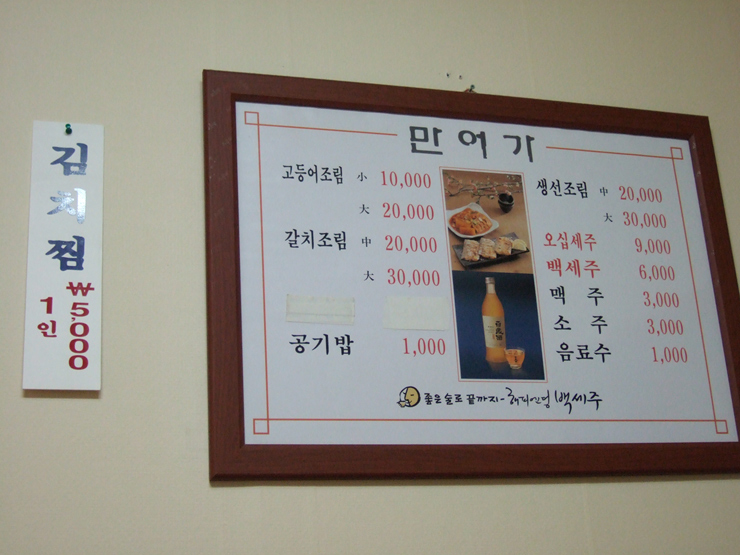 김치찜
₩5,000
1인
만어가
고등어조림 小 10,000
大 20,000
갈치조림 中 20,000
大 30,000
공기밥 1,000
생선조림 中 20,000
大 30,000
오십세주 9,000
백세주 6,000
맥주 3,000
소주 3,000
음료수 1,000
좋은술로 끝까지-해피엔딩 백세주